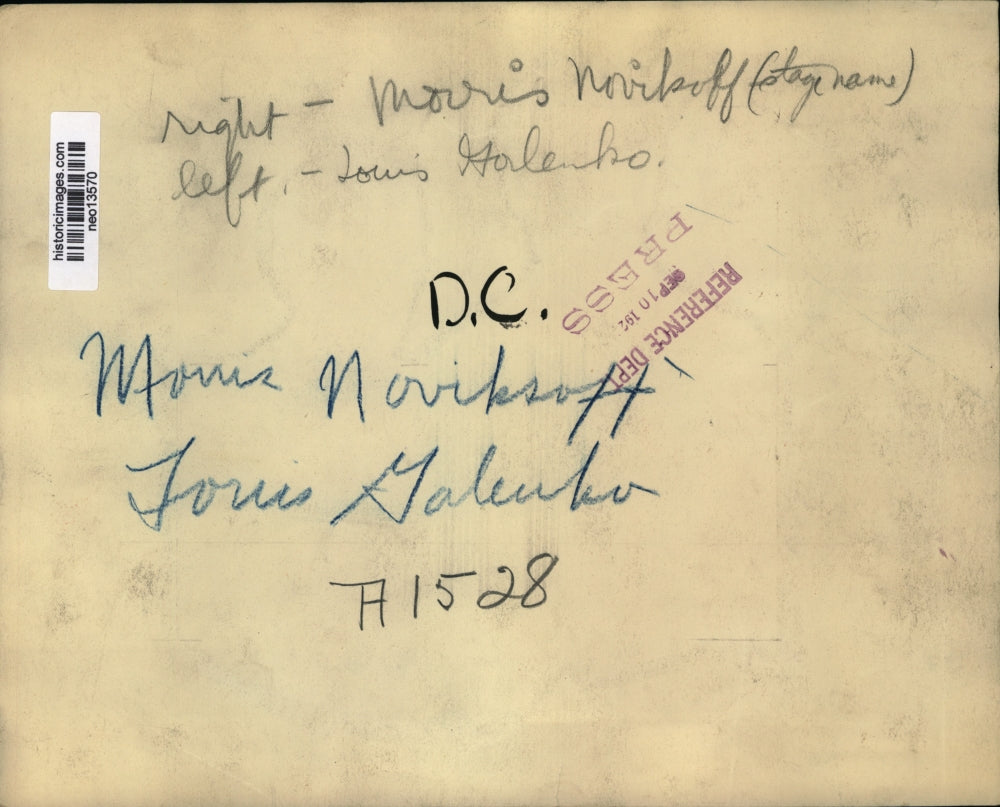 right - Morris Novikoff (stage name)
left. - Louis Galenko.
historicimages.com
neo13570
PRESS
REFERENCE DEPT
SEP 10 192
D.C.
Morris Novikoff
Louis Galenko
A1528